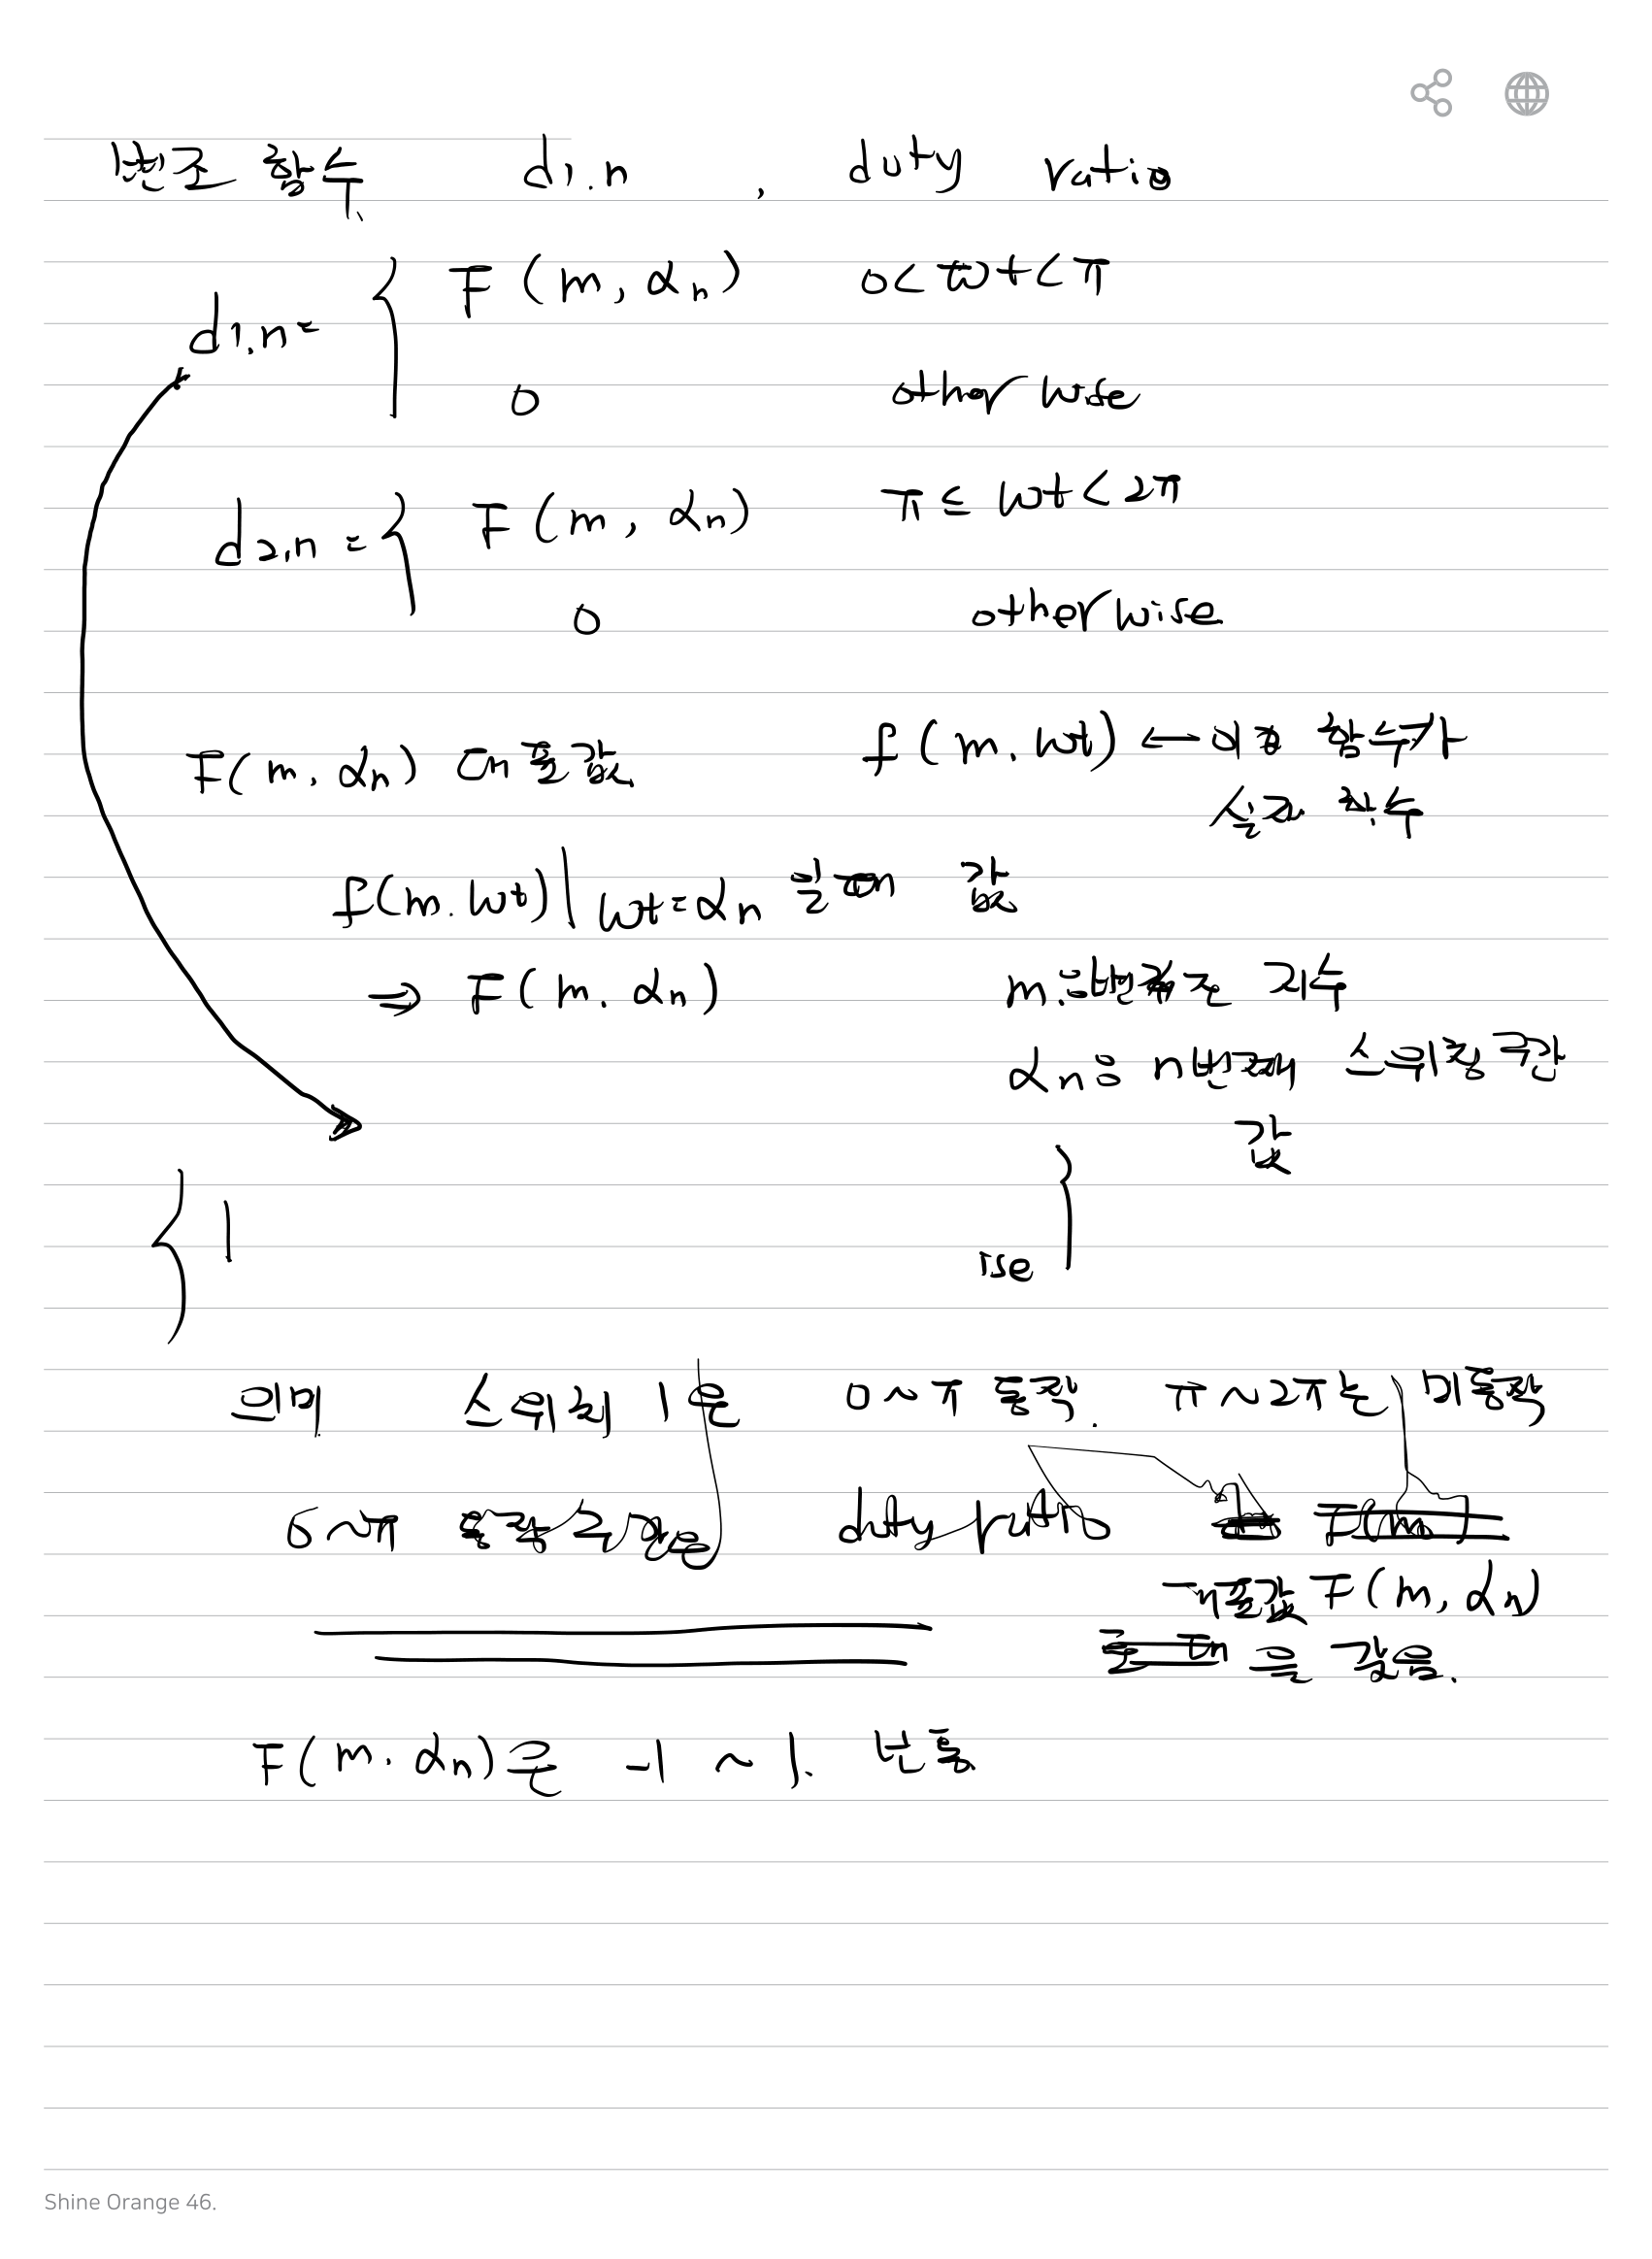 변조 함수, d1.n , duty ratio
d1.n = { F(m, αn) 0< wt <π
0 otherwise
d2.n = { F(m, αn) π ≤ wt < 2π
0 otherwise
F(m, αn) 대표값 f(m. wt) ← 함수가
실제 함수
f(m. wt)| wt=αn 일때 값
⇒ F(m. αn) m은 변조 지수
αn은 n번째 스위칭 구간
값
{ 1 ise }
의미 스위치 1은 0~π 동작. π~2π는 미동작
0~π duty ratio
대표값 F(m, αn)
을 갖음.
F(m. αn)은 -1 ~ 1. 변동
Shine Orange 46.